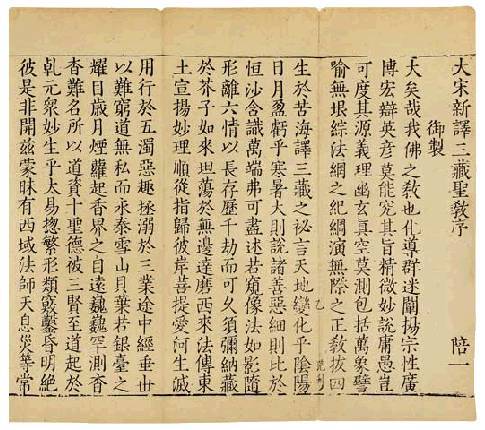 大宋新譯三藏聖教序 陪一
御製
大矣哉我佛之教也化導群迷闡揚宗性廣
博宏辯英彥莫能究其旨精微妙說庸愚豈
可度其源義理幽玄真空莫測包括萬象譬
喻無垠綜法網之紀綱演無際之正教拔四
生於苦海譯三藏之祕言天地變化乎陰陽
日月盈虧乎寒暑大則說諸善惡細則比於
恒沙含識萬端弗可盡述若窺像法如影隨
形離六情以長存歷千劫而可久須彌納藏
於芥子如來坦蕩於無邊達磨西來法傳東
土宣揚妙理順從指歸彼岸菩提愛河生滅
用行於五濁惡趣拯溺於三業途中經垂世
以難窮道無私而永泰雪山貝葉若銀臺之
耀目歲月煙蘿起香界之自遠巍巍罕測杳
杳難名所以道資十聖德被三賢至道起於
乾元衆妙生乎太易揔繁形類竅鑿昏明絕
彼是非開茲蒙昧有西域法師天息災等常